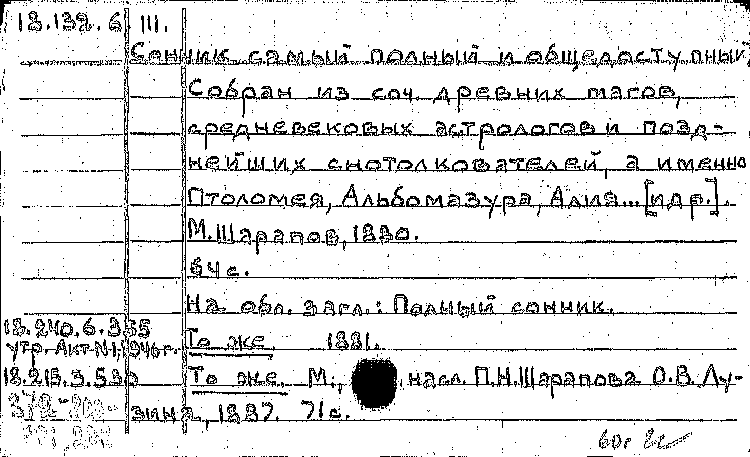 18.132.6 III.
Сонник самый полный и общедоступный.
Собран из соч. древних магов,
средневековых астрологов и позд-
нейших снотолкователей, а именно
Птоломея, Альбомазура, Алия... [и др.].
М. Шарапов, 1880.
64 с.
На обл. загл.: Полный сонник.
18.240.6.335 То же. 1881.
утр. Акт №1, 1946 г.
18.215.3.530 То же. М., насл. П.Н. Шарапова О.В. Лу-
зина, 1887. 71 с.